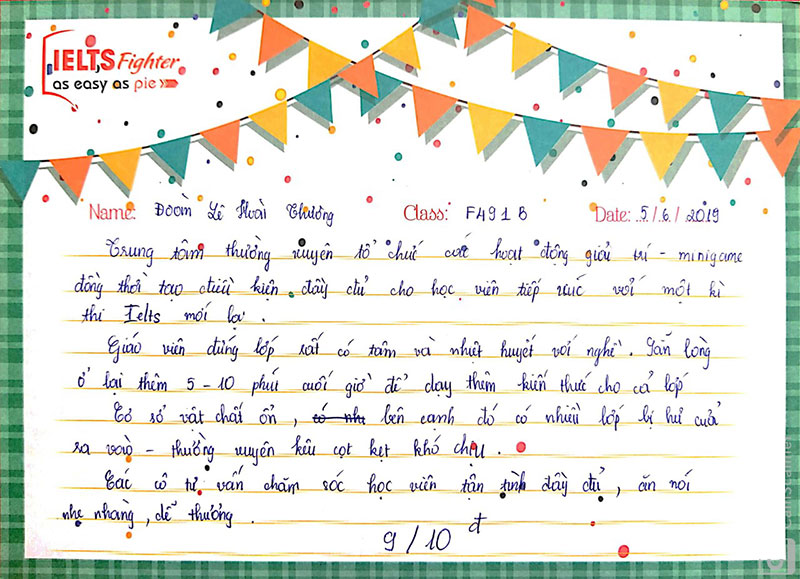 IELTS Fighter
as easy as pie
Name: Đoàn Lê Hoài Thương Class: F491B Date: 5/6/2019
Trung tâm thường xuyên tổ chức các hoạt động giải trí - minigame
đồng thời tạo điều kiện đầy đủ cho học viên tiếp xúc với một kì
thi Ielts mới lạ.
Giáo viên đứng lớp rất có tâm và nhiệt huyết với nghề. Sẵn lòng
ở lại thêm 5-10 phút cuối giờ để dạy thêm kiến thức cho cả lớp
Cơ sở vật chất ổn, bên cạnh đó có nhiều lớp bị hư cửa
ra vào - thường xuyên kêu cọt kẹt khó chịu.
Các cô tư vấn chăm sóc học viên tận tình đầy đủ, ăn nói
nhẹ nhàng, dễ thương.
9/10 đ